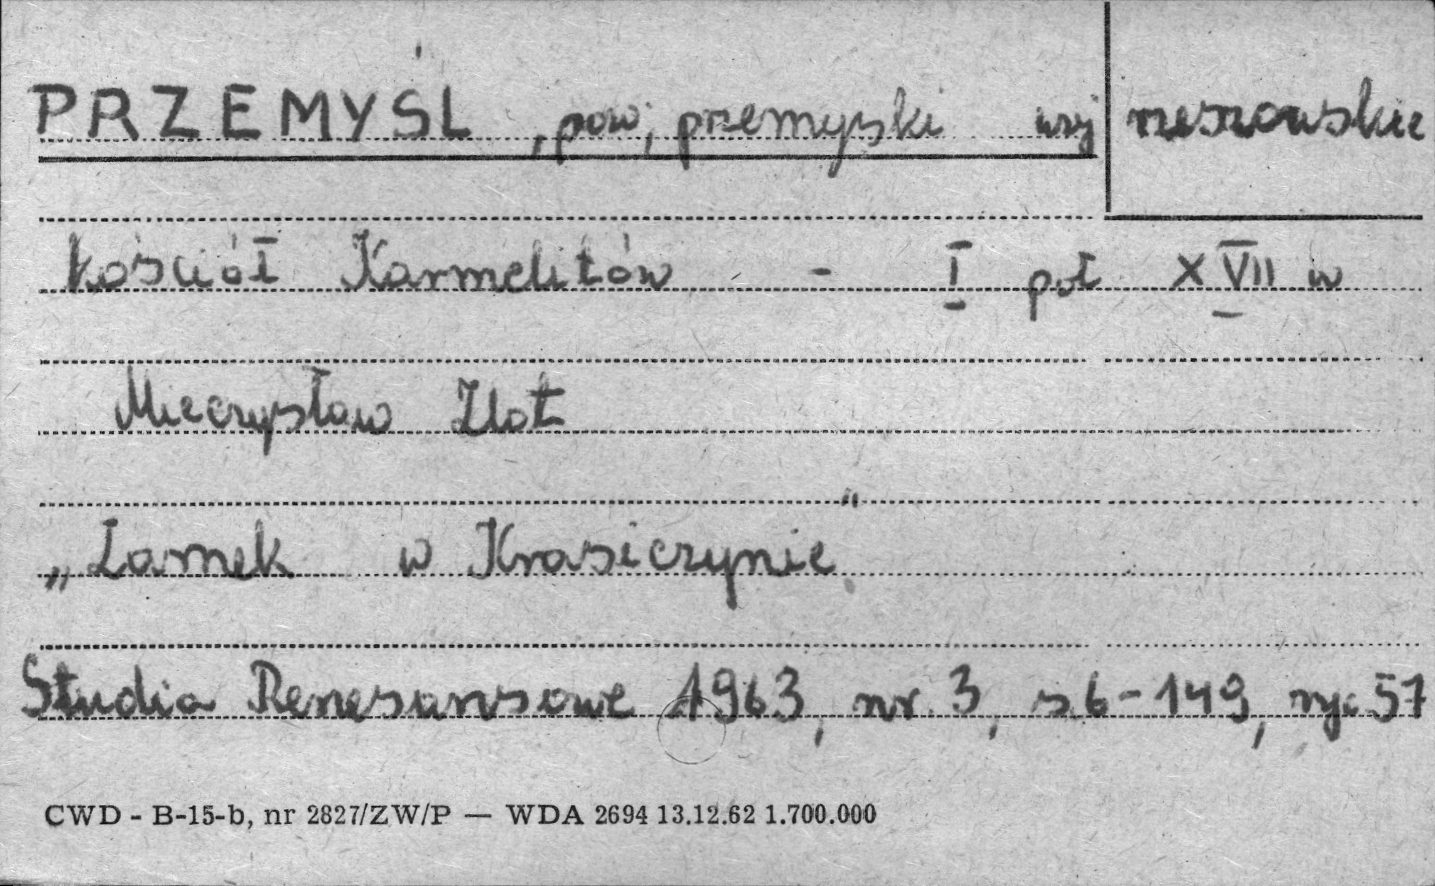 PRZEMYŚL, pow, przemyski woj rzeszowskie
kościół Karmelitów - I poł XVII w
Mieczysław Złot
„Zamek w Krasiczynie"
Studia Renesansowe 1963, nr 3, s.6-149, ryc 57
CWD - B-15-b, nr 2827/ZW/P — WDA 2694 13.12.62 1.700.000